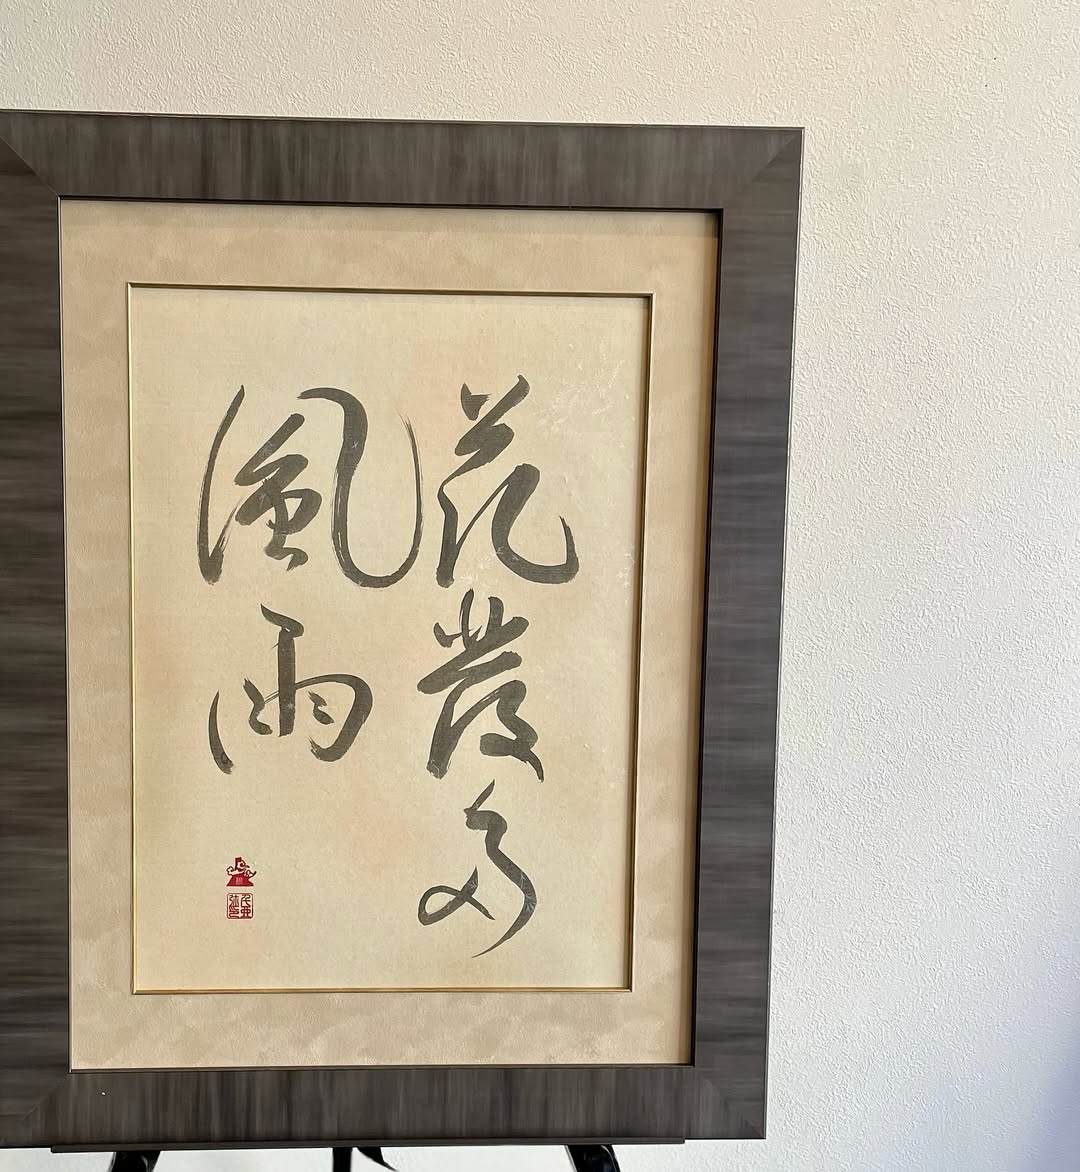 花發多
風雨